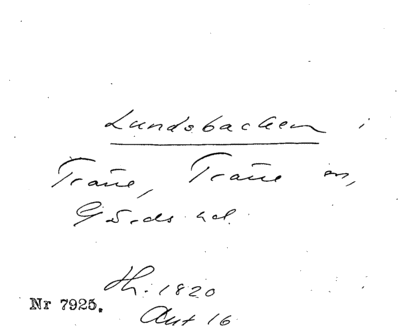 Lundsbacken i
Träne, Träne sn,
Gärds hd.
Th. 1820
Akt 16
Nr 7925.